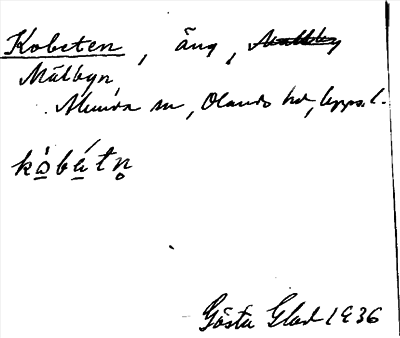 Kobeten, äng,
Mälbyn
Alunda sn, Olands hd, Upps. l.
kòbétn̥
Gösta Glad 1936